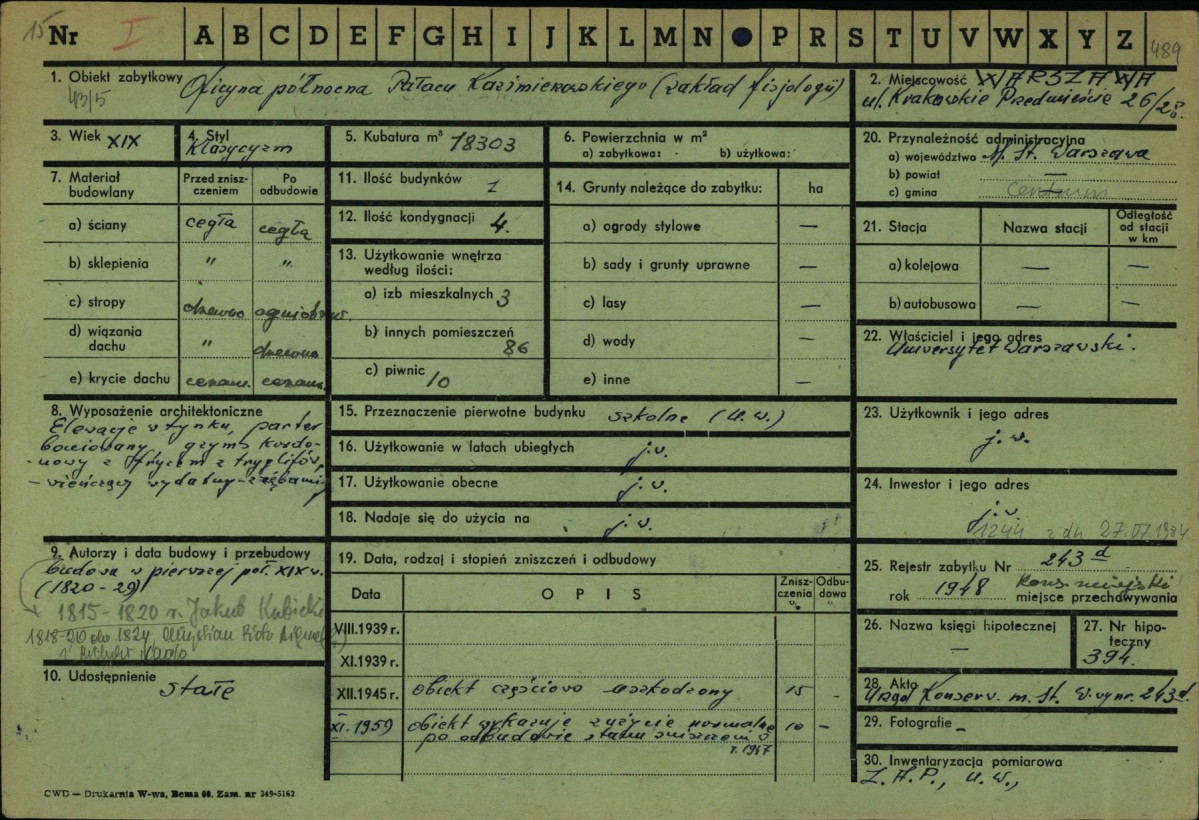 15 Nr I A B C D E F G H I J K L M N P R S T U V W X Y Z 489
1. Obiekt zabytkowy Oficyna północna Pałacu Kazimierowskiego (zakład fizjologii)
43/5
2. Miejscowość WARSZAWA
ul. Krakowskie Przedmieście 26/28.
3. Wiek XIX
4. Styl
Klasycyzm
5. Kubatura m³ 18303
6. Powierzchnia w m²
a) zabytkowa: b) użytkowa:
7. Materiał budowlany
Przed zniszczeniem
Po odbudowie
a) ściany cegła cegła
b) sklepienia " "
c) stropy drewno ogniotrw.
d) wiązania dachu " drewno
e) krycie dachu ceram. ceram.
8. Wyposażenie architektoniczne
Elewacje w tynku, parter
boniowany, gzyms kordo-
nowy z fryzem z tryglifów,
wieńczący wydatny - z ząbkami
9. Autorzy i data budowy i przebudowy
budowa w pierwszej poł. XIX w.
(1820-29)
1815-1820 r. Jakub Kubicki
1818-20 do 1824
10. Udostępnienie
stałe
11. Ilość budynków 1
12. Ilość kondygnacji 4.
13. Użytkowanie wnętrza
według ilości:
a) izb mieszkalnych 3
b) innych pomieszczeń
86
c) piwnic 10
14. Grunty należące do zabytku: ha
a) ogrody stylowe —
b) sady i grunty uprawne —
c) lasy —
d) wody —
e) inne —
15. Przeznaczenie pierwotne budynku szkolne (U.W.)
16. Użytkowanie w latach ubiegłych j.w.
17. Użytkowanie obecne j.w.
18. Nadaje się do użycia na j.w.
19. Data, rodzaj i stopień zniszczeń i odbudowy
Data OPIS Zniszczenia % Odbudowa %
VIII.1939 r.
XI.1939 r.
XII.1945 r. obiekt częściowo uszkodzony 15 -
XI.1959 obiekt wykazuje zużycie normalne 10 -
po odbudowie stanu zniszczeń z
r. 1947
20. Przynależność administracyjna
a) województwo M. St. Warszawa
b) powiat —
c) gmina Centrum
21. Stacja Nazwa stacji Odległość od stacji w km
a) kolejowa — —
b) autobusowa — —
22. Właściciel i jego adres
Uniwersytet Warszawski.
23. Użytkownik i jego adres
j.w.
24. Inwestor i jego adres
j.w.
1244 z dn 27.07.1984
25. Rejestr zabytku Nr 243 d
rok 1948 Kons. miejski
miejsce przechowywania
26. Nazwa księgi hipotecznej
—
27. Nr hipoteczny
394.
28. Akta
Urząd Konserw. m. St. W-wy nr. 243 d.
29. Fotografie –
30. Inwentaryzacja pomiarowa
Z.A.P., U.W.,
CWD — Drukarnia W-wa, Bema 60. Zam. nr 349-5162